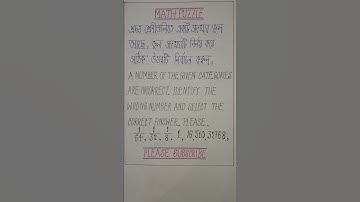 MATH PUZZLE
প্রদত্ত শ্রেণীগুলিতে একটি সংখ্যা ভুল
আছে, ভুল সংখ্যাটি নির্ণয় করে
সঠিক উত্তরটি নির্বাচন করুন.
A NUMBER OF THE GIVEN CATEGORIES
ARE INCORRECT. IDENTIFY THE
WRONG NUMBER AND SELECT THE
CORRECT ANSWER, PLEASE_
1/64, 1/32, 1/8, 1, 16, 510, 32768,
PLEASE SUBSCRIBE